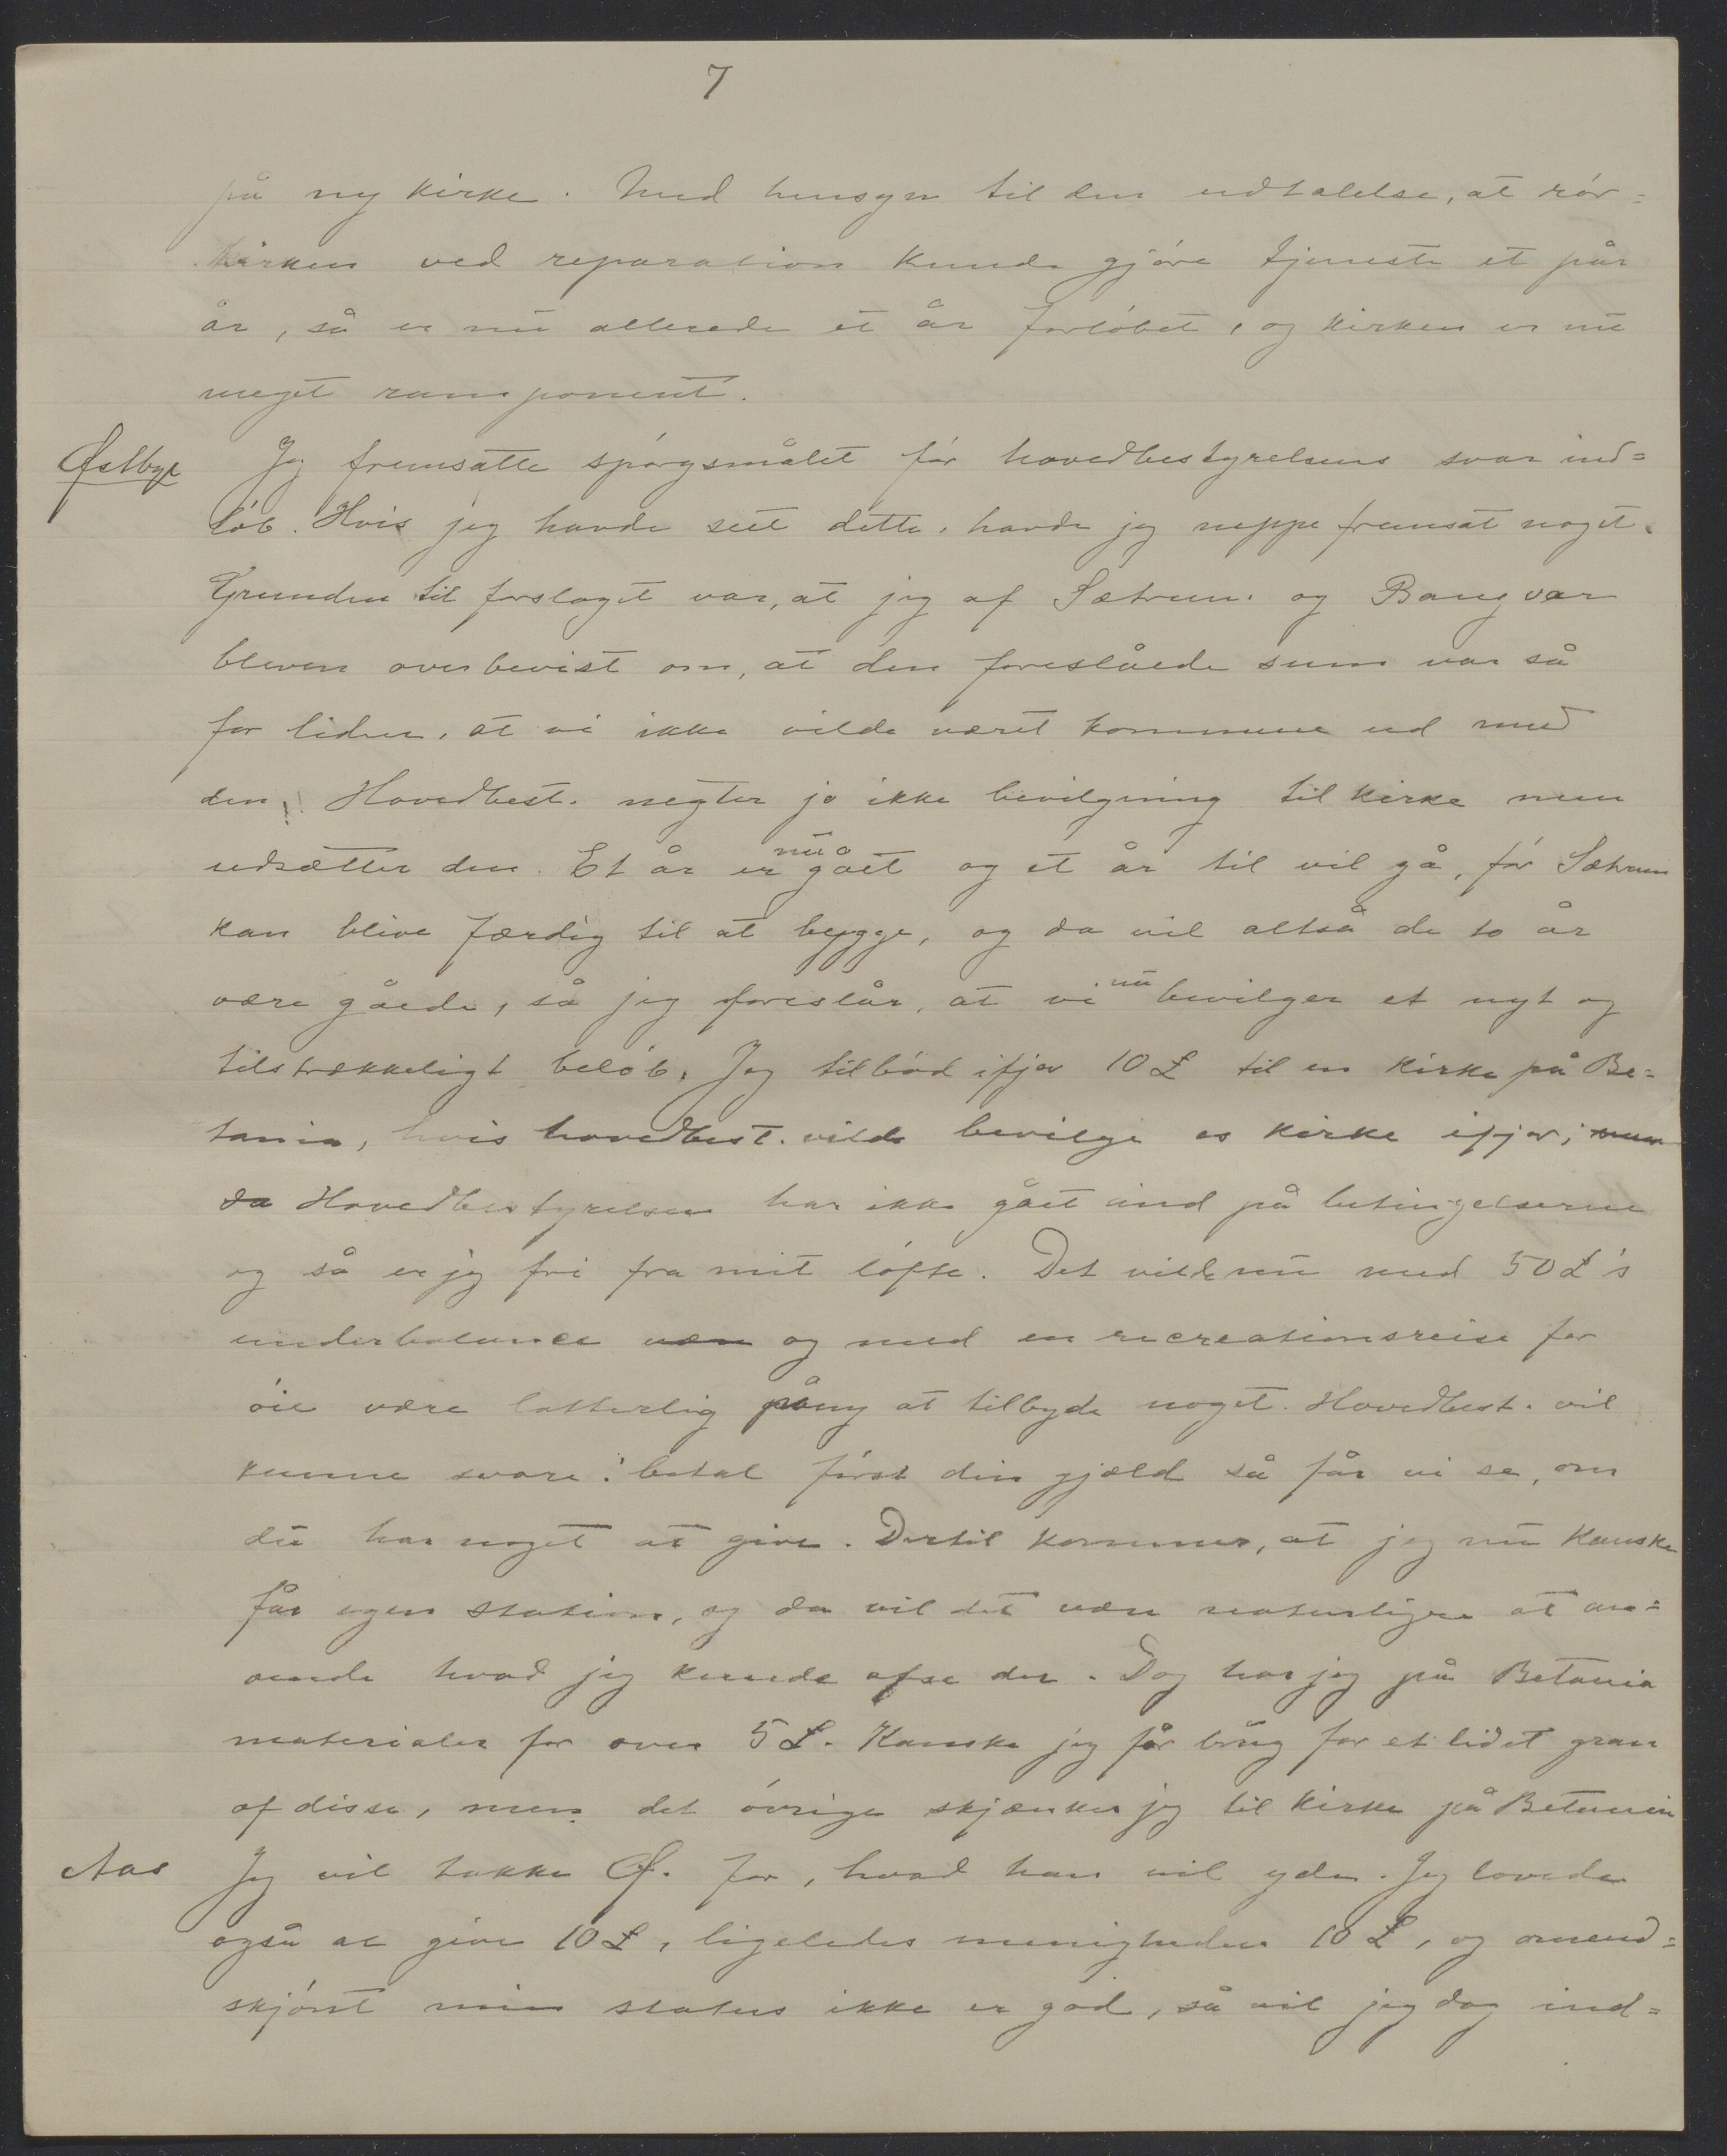 7
på ny kirke. Med hensyn til den udtalelse, at rør=
kirken ved reparation kunde gjøre tjeneste et pår
år, så er nu allerede et år forløbet, og kirken er nu
meget ramponeret.
Østbye Jeg fremsatte spørgsmålet før hovedbestyrelsens svar ind=
løb. Hvis jeg havde seet dette, havde jeg neppe fremsat noget.
Grunden til forslaget var, at jeg af Sætrum og Bang var
bleven overbevist om, at den foreslåede sum var så
for liden, at vi ikke vilde været kommene ud med
den. Hovedbest. negter jo ikke bevilgning til kirke men
udsætter den. Et år er nu gået og et år til vil gå, før Sætrum
kan blive færdig til at bygge, og da vil altså de to år
være gåede, så jeg foreslår, at vi nu bevilger et nyt og
tilstrækkeligt beløb. Jeg tilbød ifjor 10 £ til en kirke på Be=
tania, hvis hovedbest. vilde bevilge os kirke ifjor; men
da Hovedbestyrelsen har ikke gået ind på betingelserne
og så er jeg fri fra mit løfte. Det vilde nu med 50 £'s
underbalance være og med en recreationsreise for
øie være latterlig påny at tilbyde noget. Hovedbest. vil
kunne svare: betal først din gjæld så får vi se, om
du har noget at give. Dertil kommer, at jeg nu kanske
får egen station, og da vil det være naturligere at an=
vende hvad jeg kunde afse der. Dog har jeg på Betania
materialer for over 5 £. Kanske jeg får brug for et lidet gran
af disse, men det øvrige skjænker jeg til kirke på Betania
Aas Jeg vil takke Ø. for, hvad han vil yde. Jeg lovede
også at give 10 £, ligeledes menigheden 10 £, og omend=
skjønt min status ikke er god, så vil jeg dog ind=